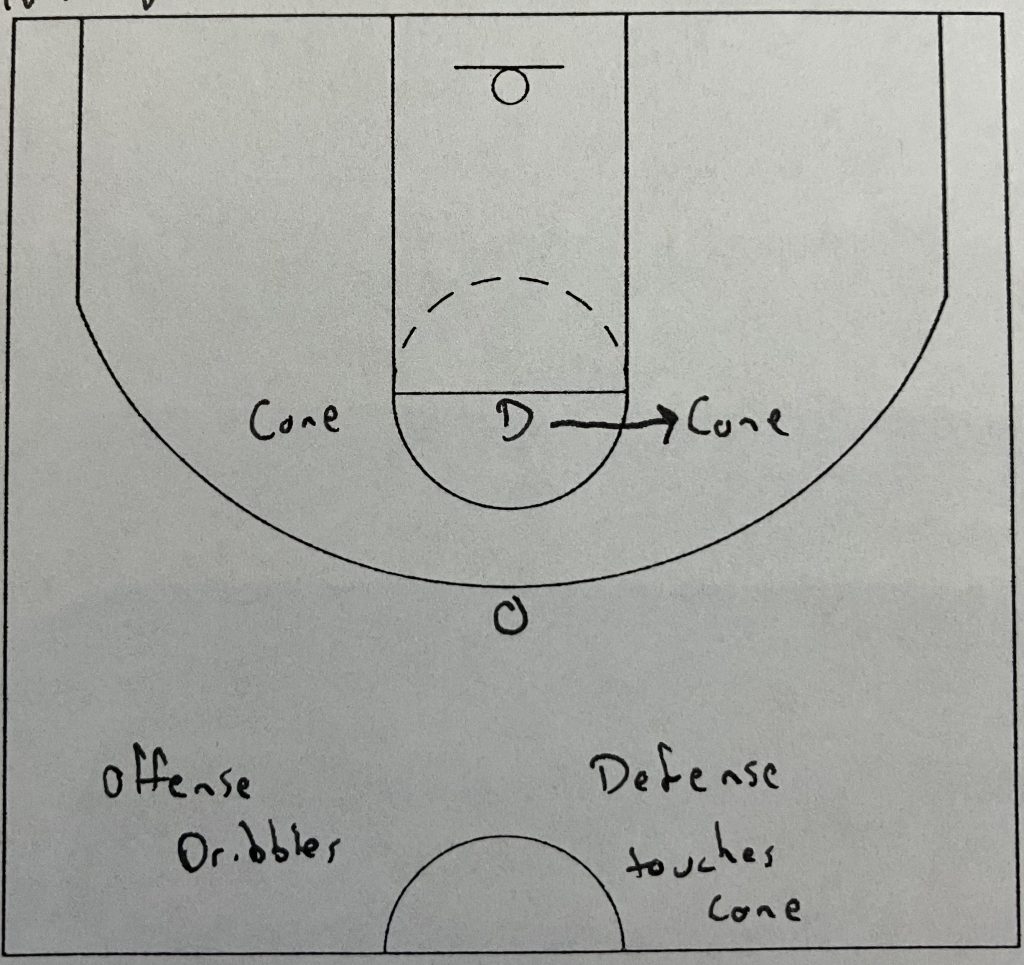 Cone D Cone
O
Offense
Dribbles
Defense
touches
Cone